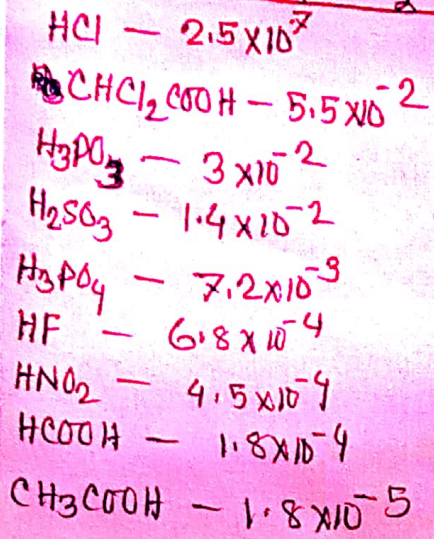 HCl — 2.5×10⁷
CHCl₂COOH — 5.5×10⁻²
H₃PO₃ — 3×10⁻²
H₂SO₃ — 1.4×10⁻²
H₃PO₄ — 7.2×10⁻³
HF — 6.8×10⁻⁴
HNO₂ — 4.5×10⁻⁴
HCOOH — 1.8×10⁻⁴
CH₃COOH — 1.8×10⁻⁵